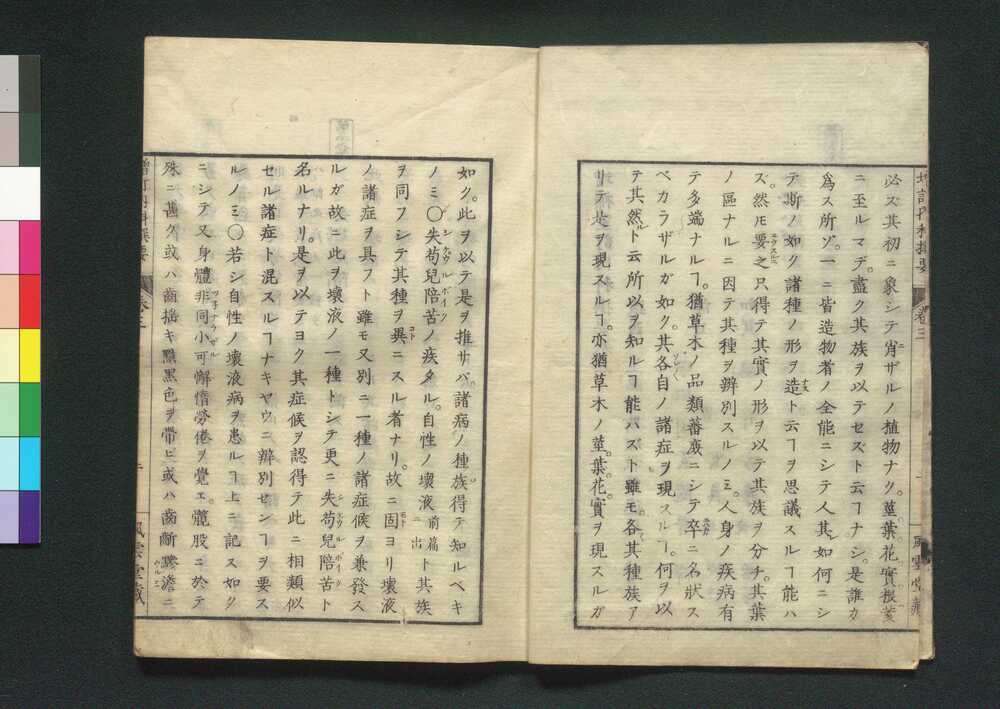 必ズ其初ニ象シテ宵ザルノ植物ナク。莖葉花實根荄
ニ至ルマデ。盡ク其族ヲ以テセズト云ヿナシ。是誰カ
爲ス所ゾ。一ニ皆造物者ノ全能ニシテ人其如何ニシ
テ斯ノ如ク諸種ノ形ヲ造ト云ヿヲ思議スルヿ能ハ
ズ。然𪜈要之只得テ其實ノ形ヲ以テ其族ヲ分チ。其葉
ノ區ナルニ因テ其種ヲ辨別スルノミ。人身ノ疾病有
テ多端ナルヿ。猶草木ノ品類蕃廡ニシテ卒ニ名狀ス
ベカラザルガ如ク。其各自ノ諸症ヲ現スルヿ。何ヲ以
テ其然ト云所以ヲ知ルヿ能ハズト雖モ。各其種族ア
リテ是ヲ現スルヿ。亦猶草木ノ莖。葉。花。實ヲ現スルガ
如ク。此ヲ以テ是ヲ推サバ。諸病ノ種族得テ知ルベキ
ノミ〇失苟兒陪苦ノ疾タル。自性ノ壞液前篇ニ出ト其族
ヲ同フシテ其種ヲ異ニスル者ナリ。故ニ固ヨリ壞液
ノ諸症ヲ具フト雖モ又別ニ一種ノ諸症候ヲ兼發ス
ルガ故ニ此ヲ壞液ノ一種トシテ更ニ失苟兒陪苦ト
名ルナリ。是ヲ以テヨク其症候ヲ認得テ此ニ相類似
セル諸症ト混スルヿナキヤウニ辨別センヿヲ要ス
ルノミ〇若シ自性ノ壞液病ヲ患ルヿ上ニ記ス如ク
ニシテ又身體非同小可懈惰勞倦ヲ覺ェ。髖股ニ於テ
殊ニ甚ク或ハ齒揺キ黑色ヲ帶ビ或ハ齒齗黲澹ニ
增訂內科撰要
卷三
風雲堂藏